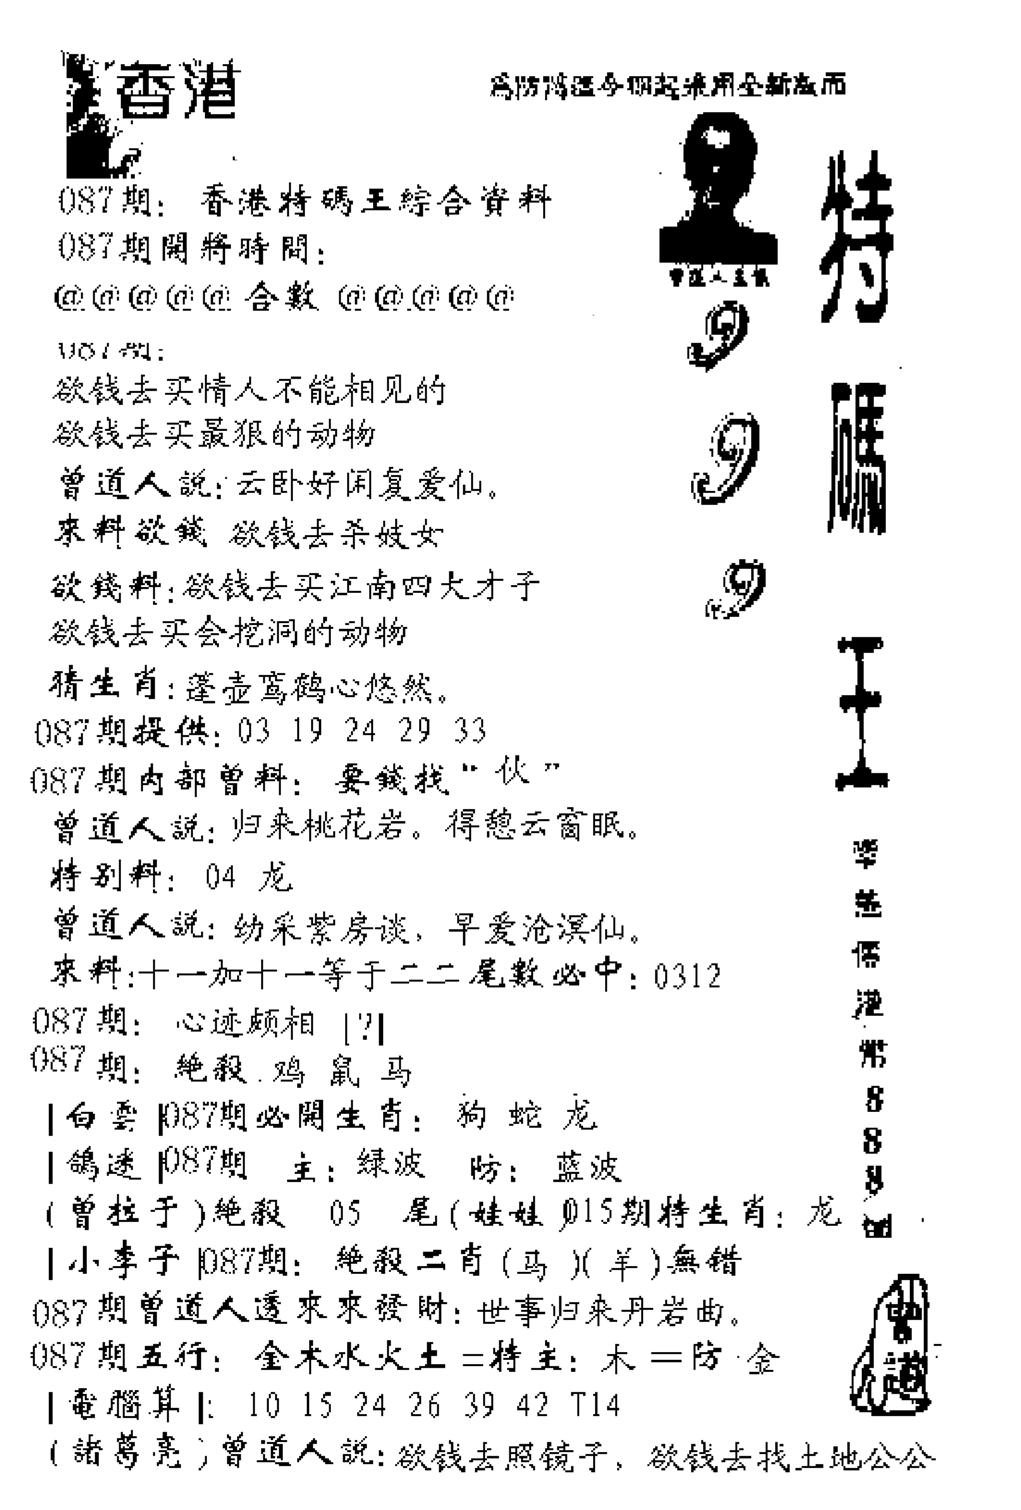 香港
為防濫今期起采用全新版面
087期: 香港特碼王綜合資料
087期開將時間:
@@@@@ 合數 @@@@@
087期:
欲钱去买情人不能相见的
欲钱去买最狠的动物
曾道人説: 云卧好闲复爱仙。
來料欲錢 欲钱去杀妓女
欲錢料: 欲钱去买江南四大才子
欲钱去买会挖洞的动物
猜生肖: 蓬壶鸾鹤心悠然。
087期提供: 03 19 24 29 33
087期内部曾料: 要錢找“伙”
曾道人説: 归来桃花岩。得憩云窗眠。
特别料: 04 龙
曾道人説: 幼采紫房谈, 早爱沧溟仙。
來料:十一加十一等于二二尾數必中: 0312
087期: 心迹颇相 |?|
087期: 絶殺 鸡 鼠 马
|白雲|087期必開生肖: 狗 蛇 龙
|鴿迷|087期 主: 绿波 防: 蓝波
(曾拉于)絶殺 05 尾(娃娃)015期特生肖: 龙
|小李子|087期: 絶殺二肖(马)(羊)無錯
087期曾道人透來來發財: 世事归来丹岩曲。
087期五行: 金木水火土=特主: 木=防 金
|電腦算|: 10 15 24 26 39 42 T14
(諸葛亮)曾道人説: 欲钱去照镜子, 欲钱去找土地公公
曾道人
9
9
9
特碼王
港幣888
曾道